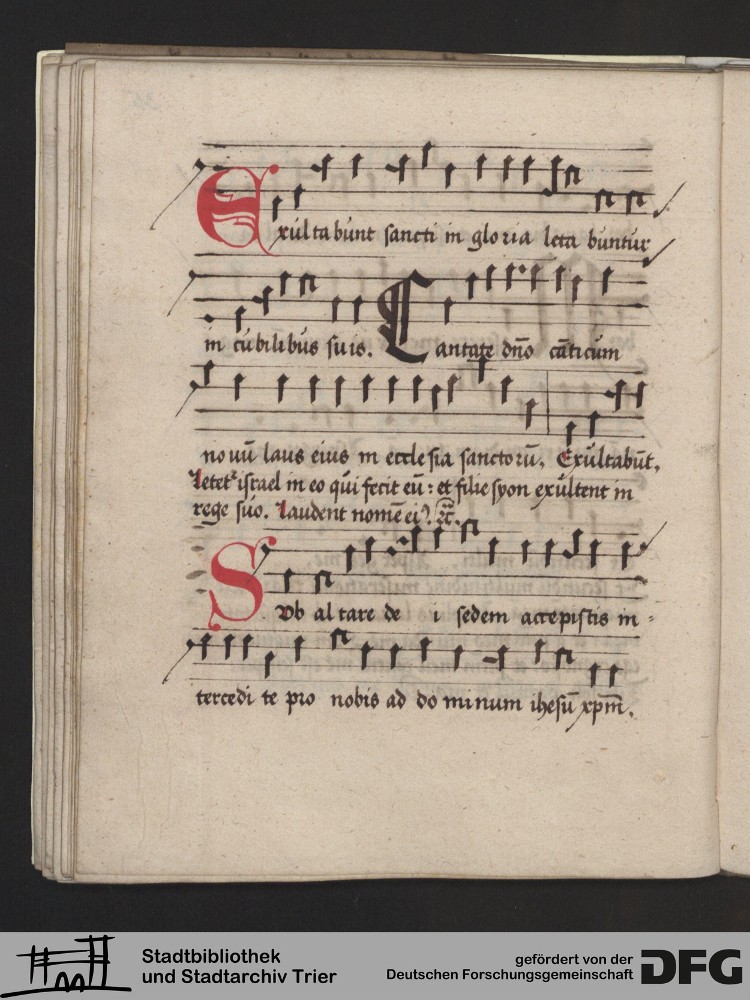 Exultabunt sancti in gloria leta buntur
in cubilibus suis. Cantate dño cãticum
nouũ laus eius in ecclesia sanctorũ, Exultabũt,
letet² israel in eo qui fecit eũ: et filie syon exultent in
rege suo. laudent nomẽ ei⁹. ꝛc̃.
Sub altare de i sedem accepistis in=
tercedi te pro nobis ad dominum ihesũ xpm̃.
Stadtbibliothek
und Stadtarchiv Trier
gefördert von der
Deutschen Forschungsgemeinschaft
DFG